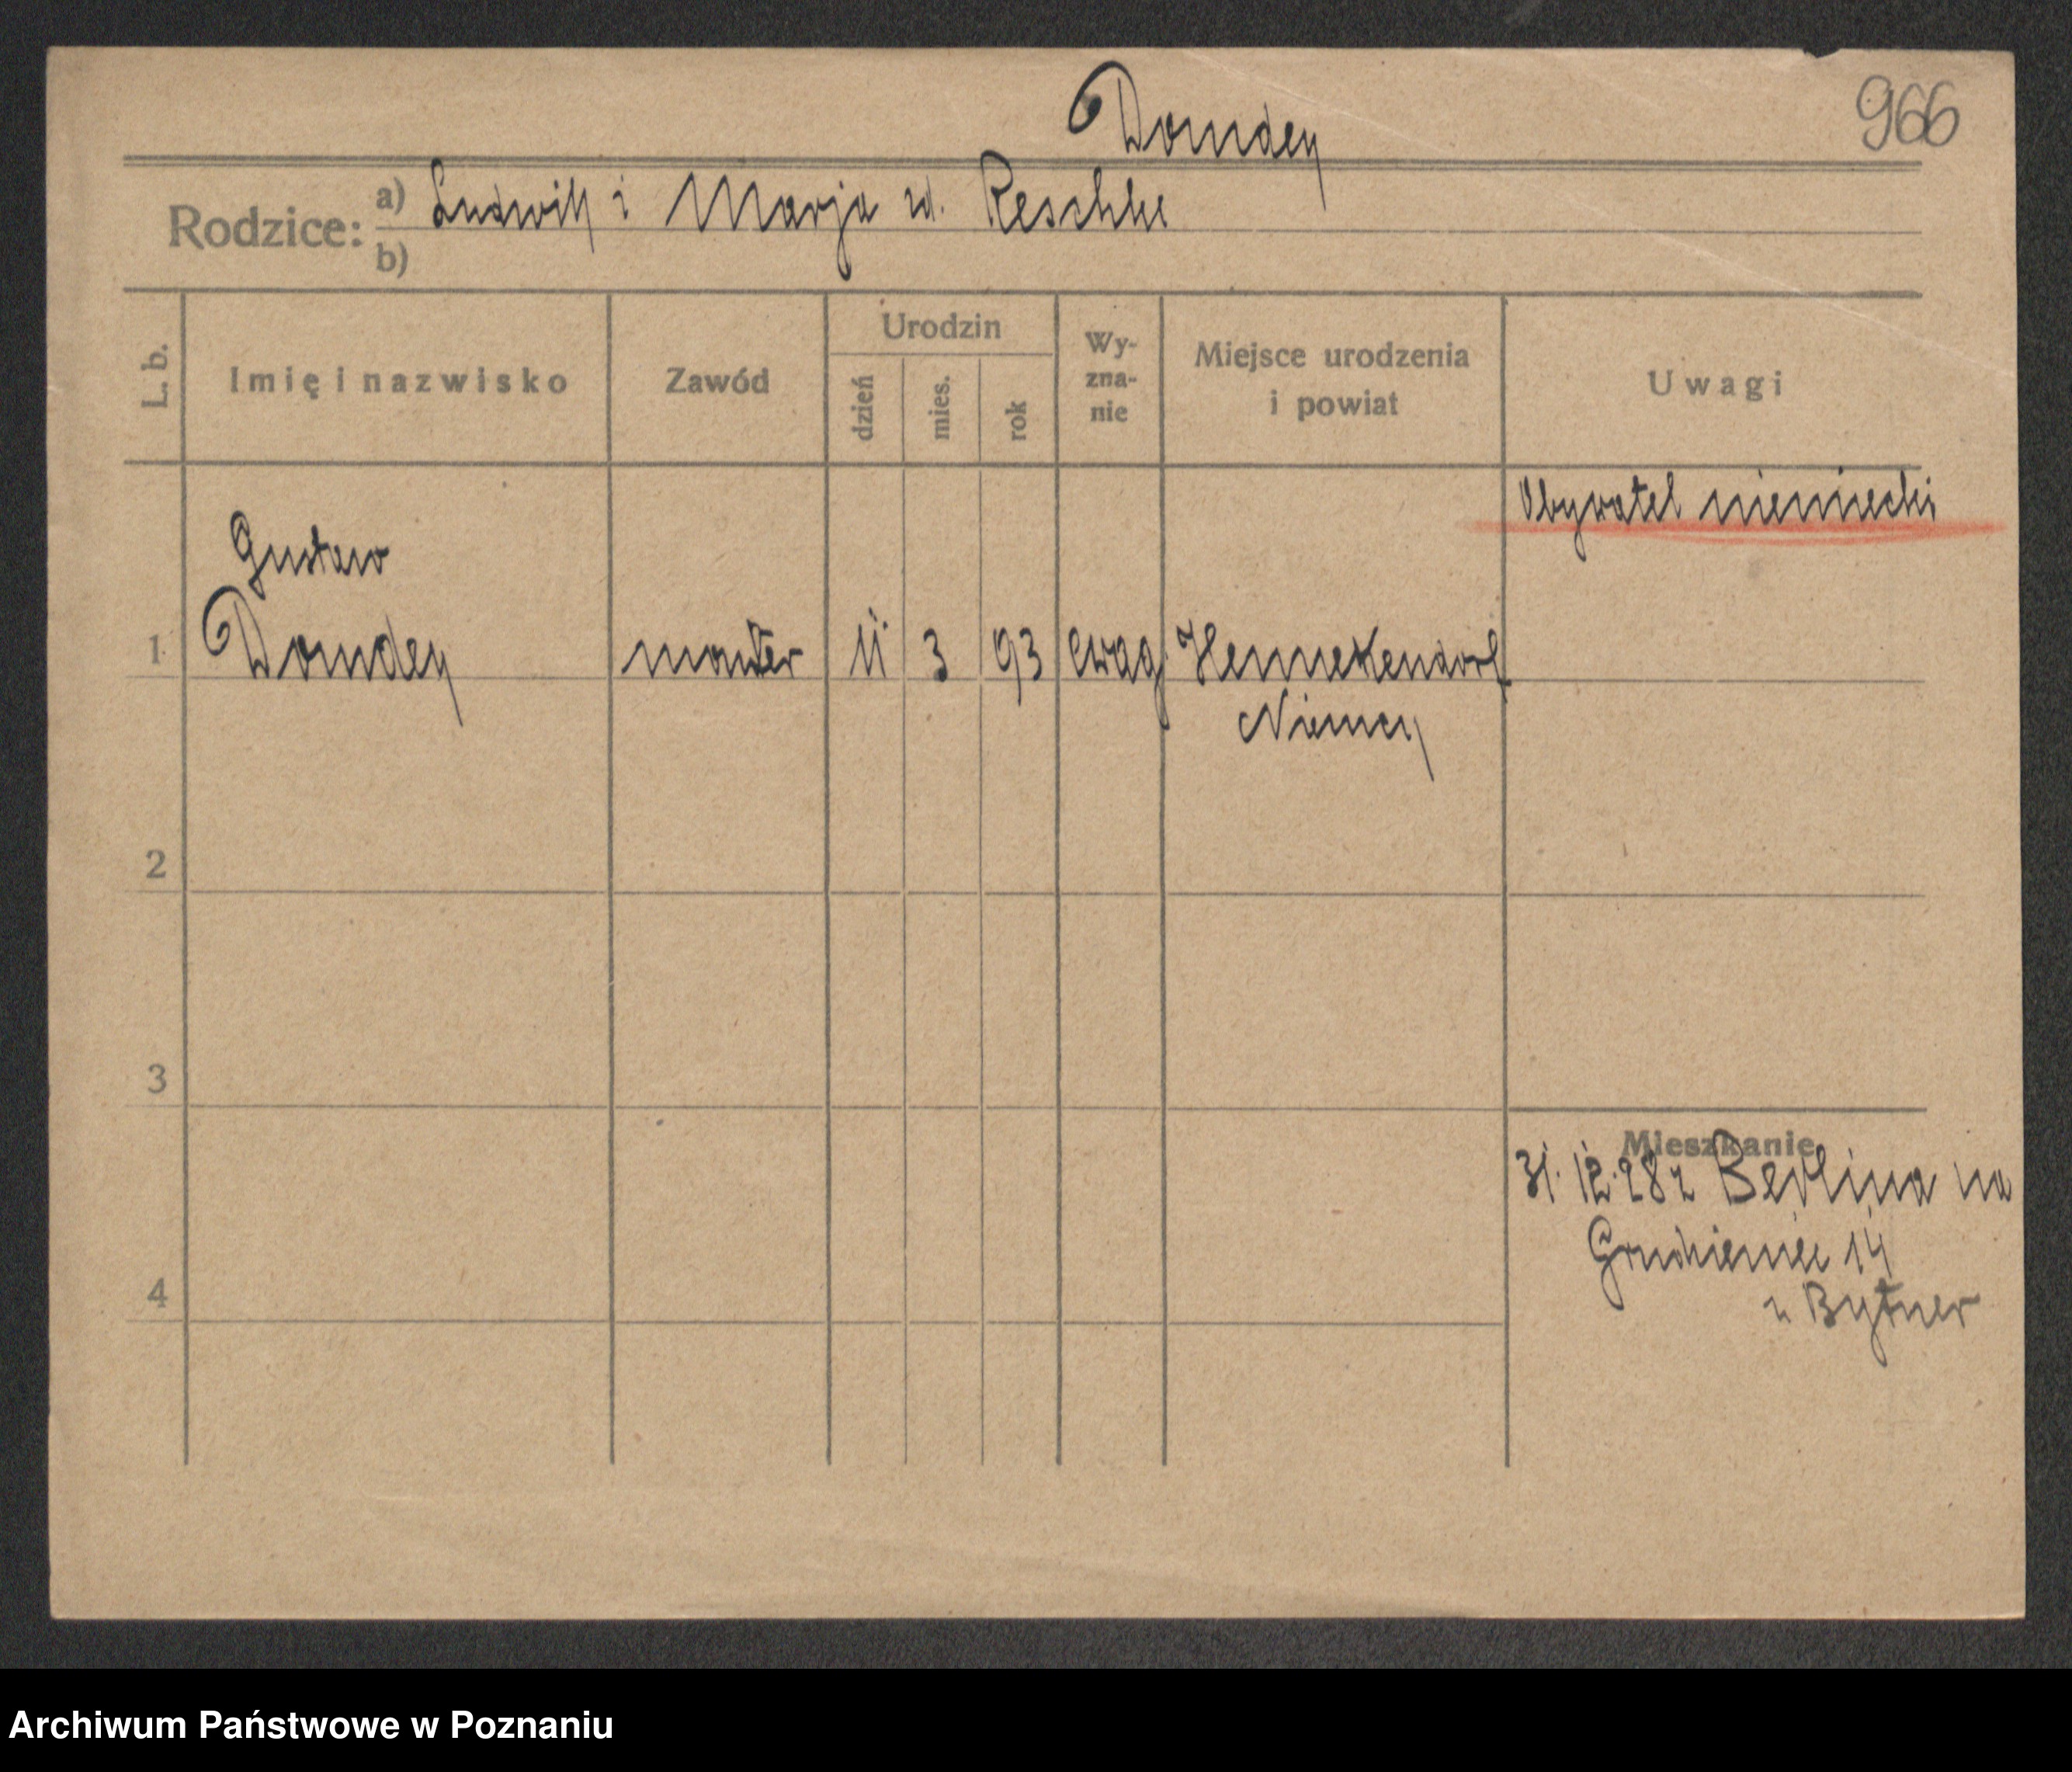 966
Domdey
Rodzice: a) Ludwik i Marja zd. Reschke
b)
L. b. Imię i nazwisko Zawód Urodzin dzień mies. rok Wy-zna-nie Miejsce urodzenia i powiat Uwagi
Obywatel niemiecki
Gustaw
1 Domdey monter 11 3 93 ewag Hennekendorf
Niemcy
2
3
Mieszkanie
31.12.28 z Berlina na
Grudzieniec 14
4
u Bytner
Archiwum Państwowe w Poznaniu